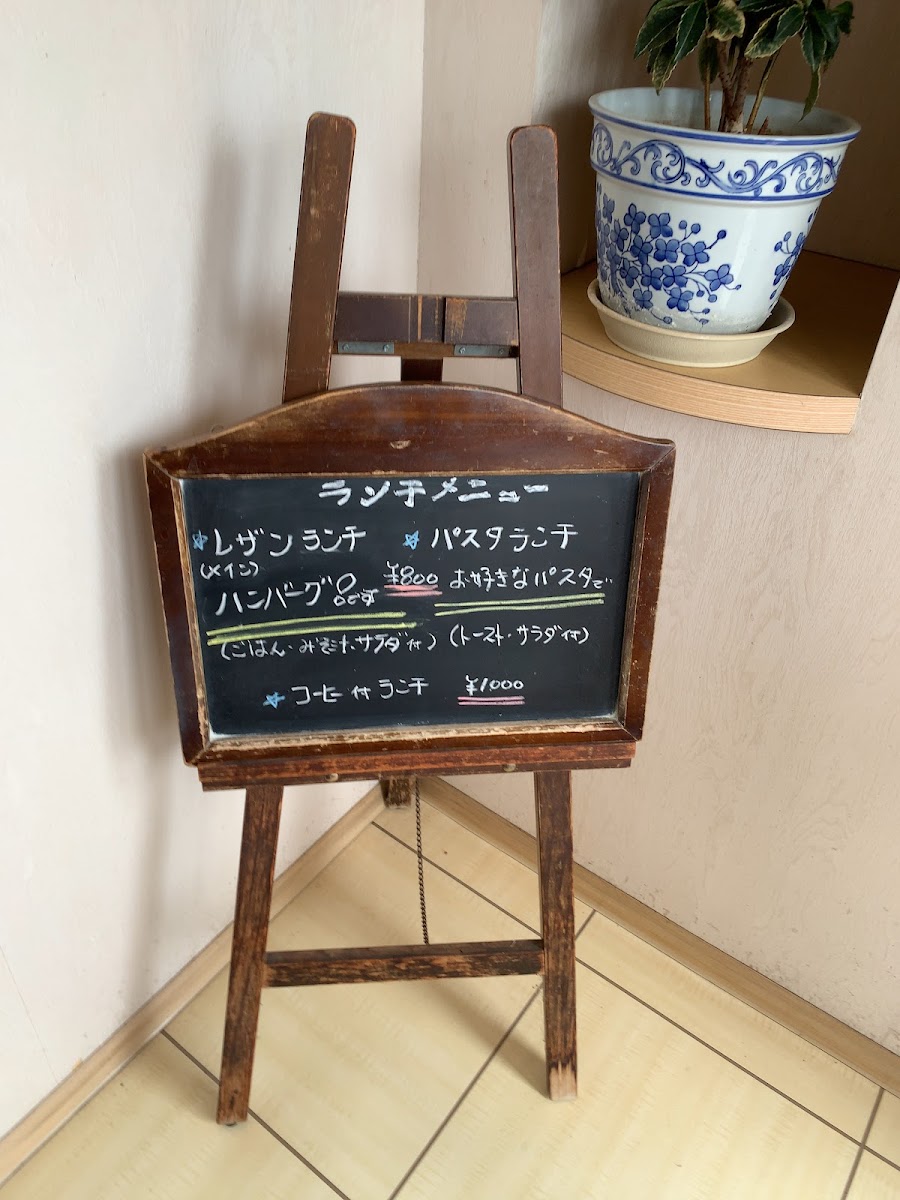 ランチメニュー
★レザンランチ
(メイン)
ハンバーグ
です
¥800
(ごはん・みそ汁・サラダ付)
★パスタランチ
お好きなパスタで
(トースト・サラダ付)
★コーヒー付ランチ ¥1000